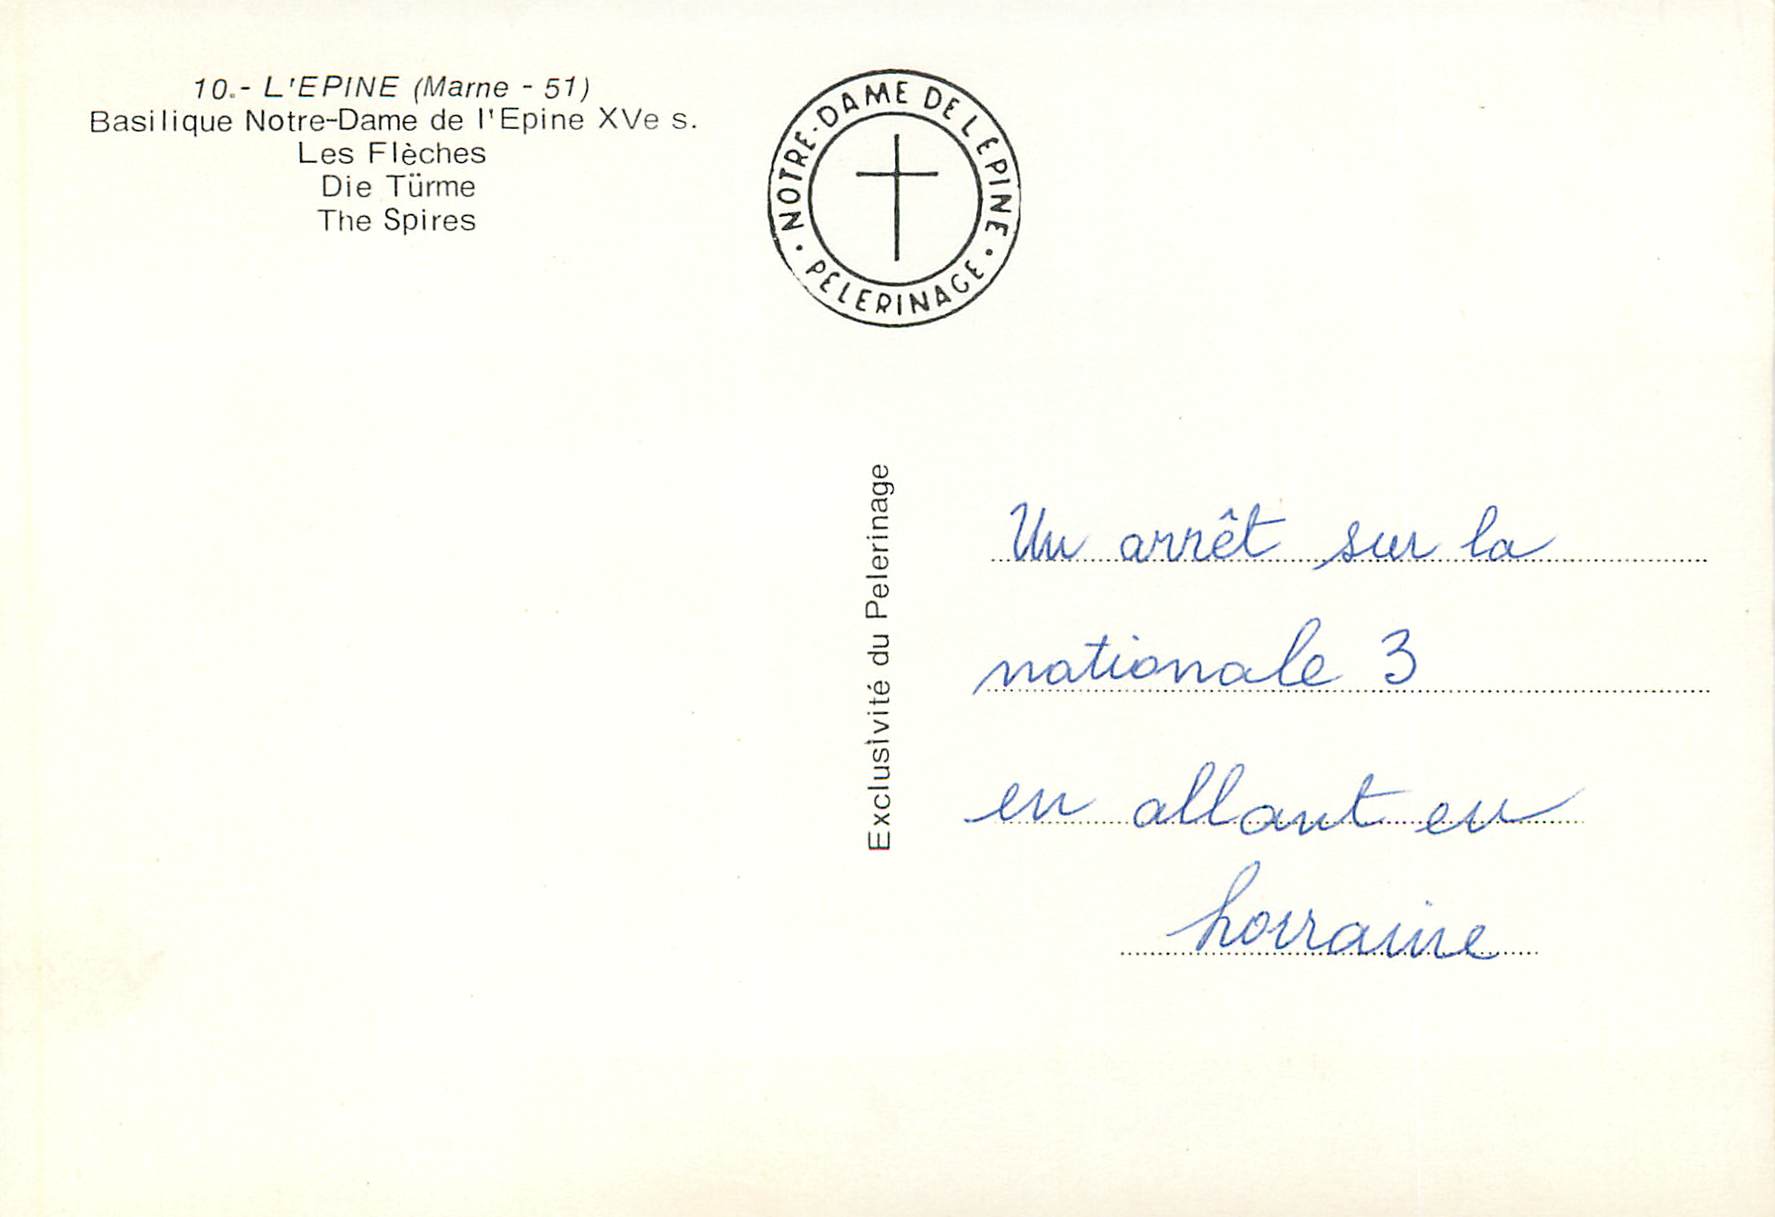 10.- L'EPINE (Marne - 51)
Basilique Notre-Dame de l'Epine XVe s.
Les Flèches
Die Türme
The Spires
NOTRE-DAME DE L EPINE
• PELERINAGE •
Exclusivité du Pelerinage
Un arrêt sur la
nationale 3
en allant en
Lorraine